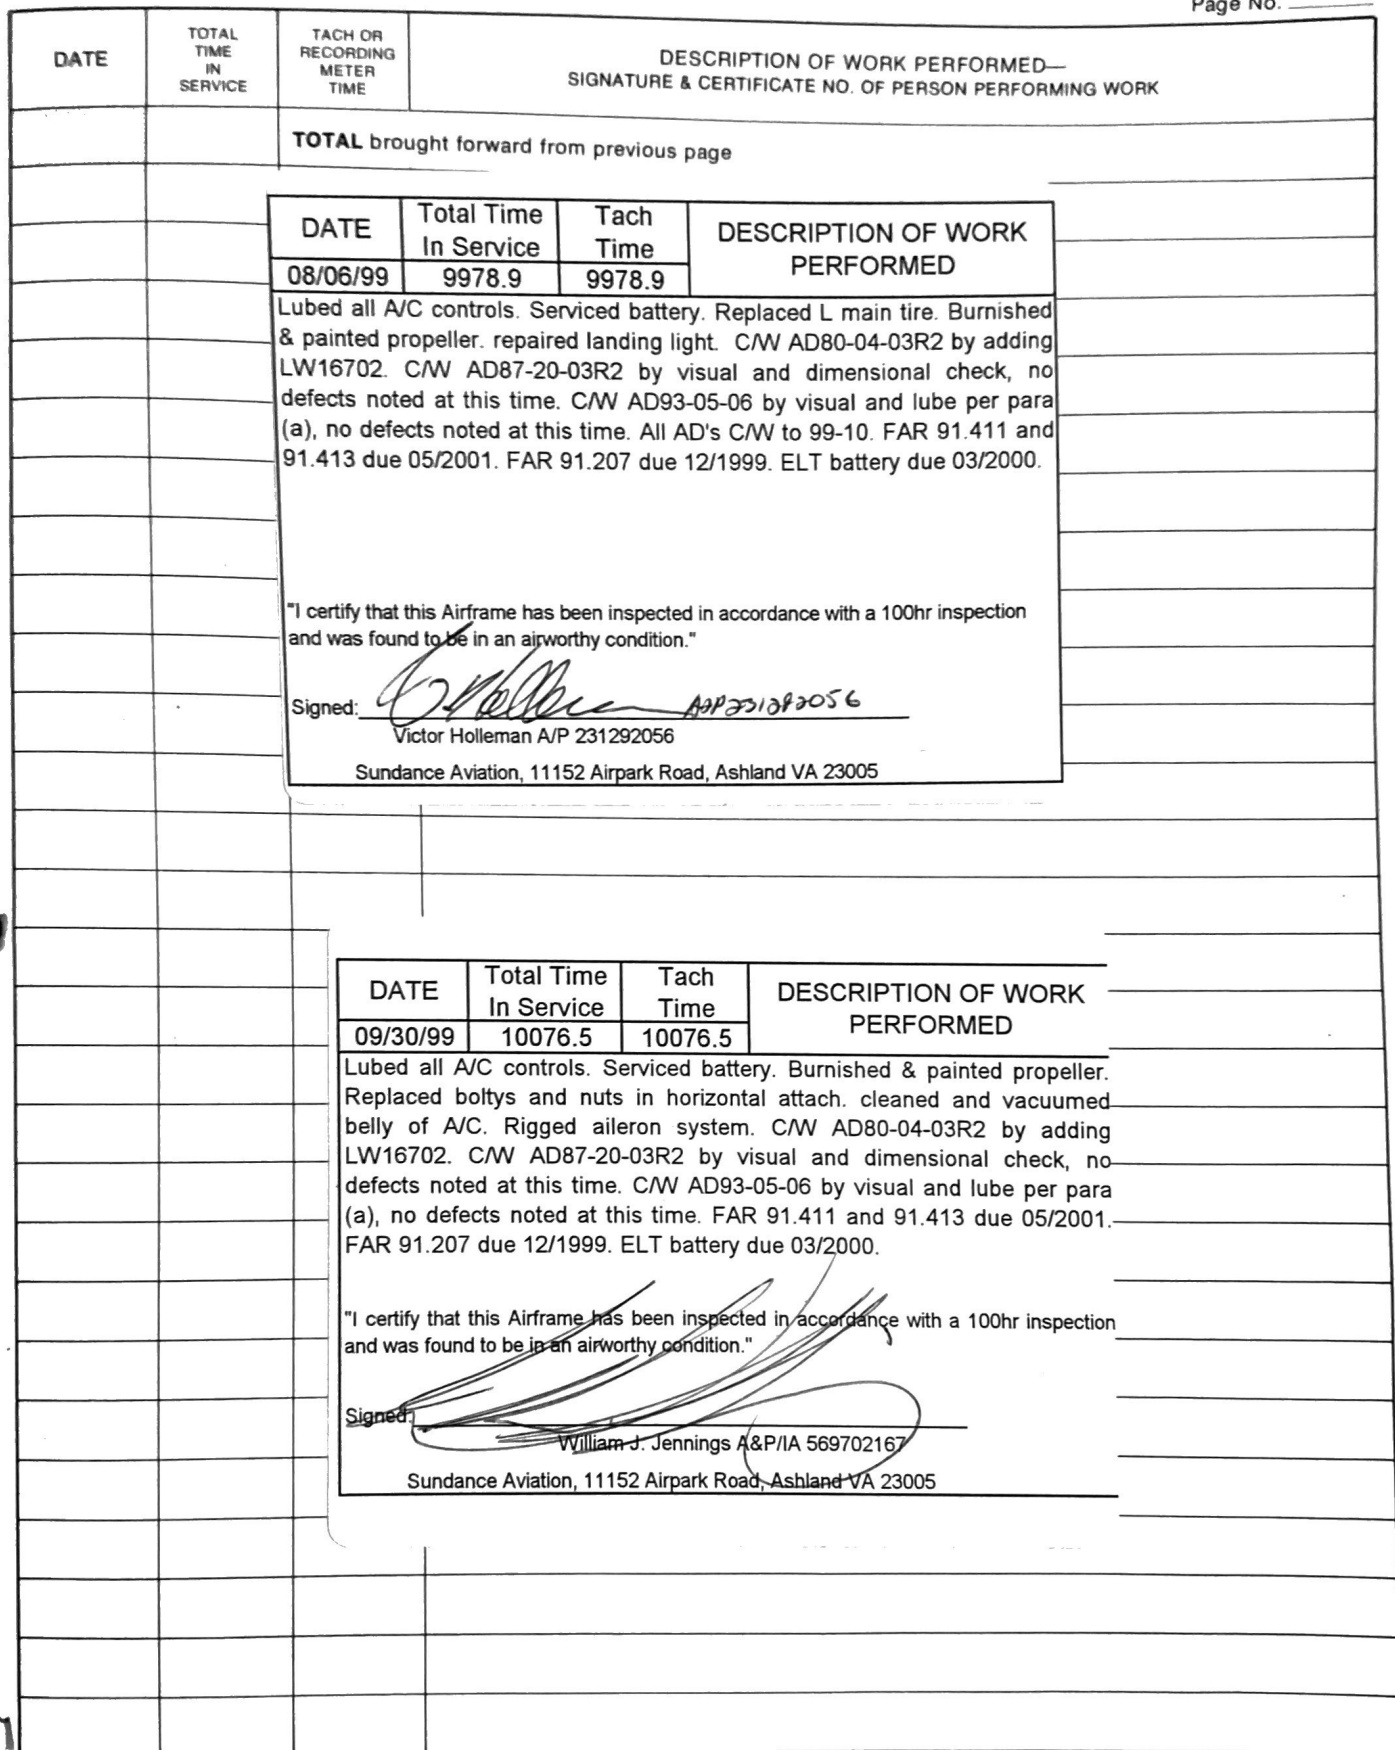 Page No.
DATE
TOTAL
TIME
IN
SERVICE
TACH OR
RECORDING
METER
TIME
DESCRIPTION OF WORK PERFORMED—
SIGNATURE & CERTIFICATE NO. OF PERSON PERFORMING WORK
TOTAL brought forward from previous page
DATE
Total Time
In Service
Tach
Time
DESCRIPTION OF WORK
PERFORMED
08/06/99 9978.9 9978.9
Lubed all A/C controls. Serviced battery. Replaced L main tire. Burnished
& painted propeller. repaired landing light. C/W AD80-04-03R2 by adding
LW16702. C/W AD87-20-03R2 by visual and dimensional check, no
defects noted at this time. C/W AD93-05-06 by visual and lube per para
(a), no defects noted at this time. All AD's C/W to 99-10. FAR 91.411 and
91.413 due 05/2001. FAR 91.207 due 12/1999. ELT battery due 03/2000.
"I certify that this Airframe has been inspected in accordance with a 100hr inspection
and was found to be in an airworthy condition."
Signed: A&P231292056
Victor Holleman A/P 231292056
Sundance Aviation, 11152 Airpark Road, Ashland VA 23005
DATE
Total Time
In Service
Tach
Time
DESCRIPTION OF WORK
PERFORMED
09/30/99 10076.5 10076.5
Lubed all A/C controls. Serviced battery. Burnished & painted propeller.
Replaced boltys and nuts in horizontal attach. cleaned and vacuumed
belly of A/C. Rigged aileron system. C/W AD80-04-03R2 by adding
LW16702. C/W AD87-20-03R2 by visual and dimensional check, no
defects noted at this time. C/W AD93-05-06 by visual and lube per para
(a), no defects noted at this time. FAR 91.411 and 91.413 due 05/2001.
FAR 91.207 due 12/1999. ELT battery due 03/2000.
"I certify that this Airframe has been inspected in accordance with a 100hr inspection
and was found to be in an airworthy condition."
Signed:
William J. Jennings A&P/IA 569702167
Sundance Aviation, 11152 Airpark Road, Ashland VA 23005